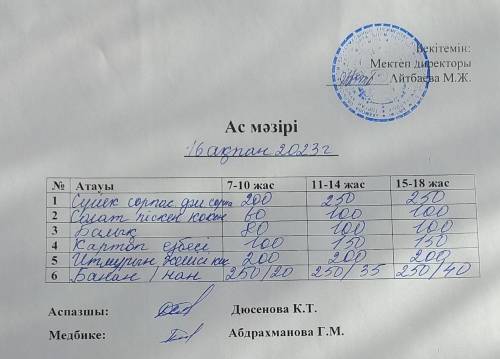 Бекітемін:
Мектеп директоры
Айтбаева М.Ж.
Ас мәзірі
16 ақпан 2023 г
№ Атауы 7-10 жас 11-14 жас 15-18 жас
1 Сүйек сорпас 200 250 250
2 Салат піскен 60 100 100
3 Балық 80 100 100
4 Картоп езбесі 100 150 150
5 Итмұрын 200 200 200
6 Банан / нан 250/20 250/35 250/40
Аспазшы: Дюсенова К.Т.
Медбике: Абдрахманова Г.М.